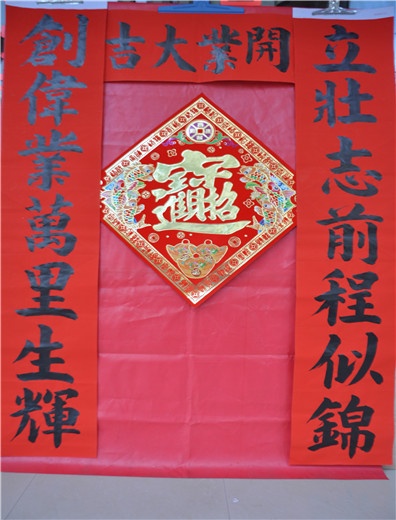 開業大吉
立壯志前程似錦
創偉業萬里生輝
招財進寶